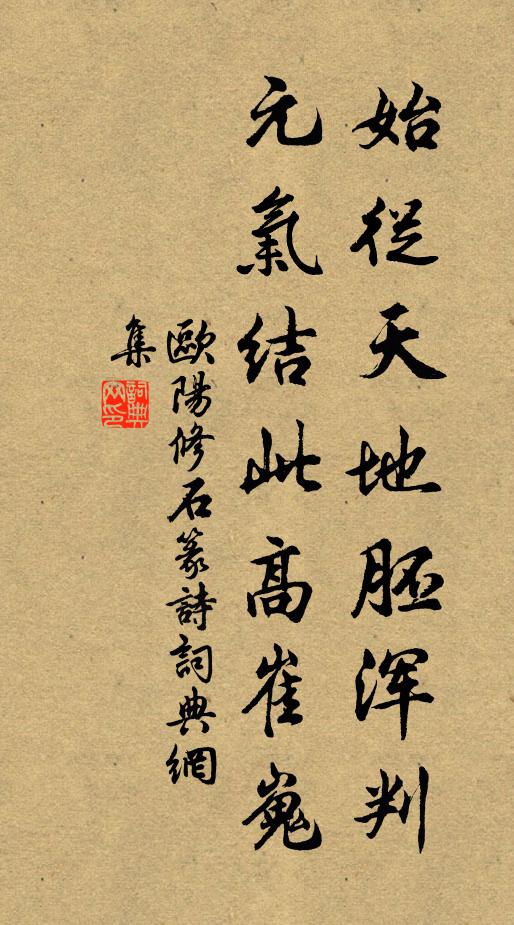 始從天地胚浑判
元氣結此高崔嵬
歐陽修石篆詩詞典網
集
詞典
网印